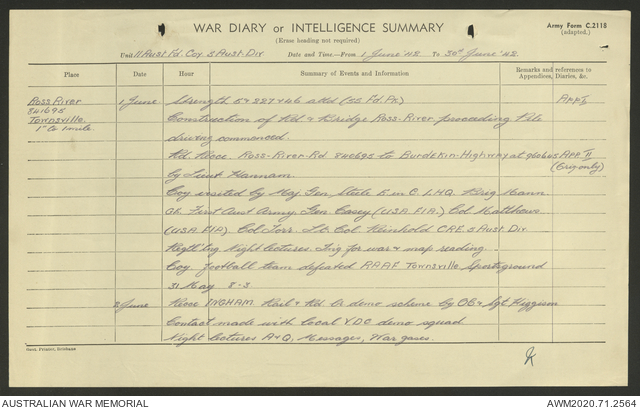 WAR DIARY or INTELLIGENCE SUMMARY
(Erase heading not required)
Army Form C.2118
(adapted.)
Unit 11 Aust Fd. Coy 5 Aust. Div Date and Time—From 1 June '42 to 30th June '42
Place Date Hour Summary of Events and Information Remarks and references to Appendices, Diaries, &c.
Ross River 1 June Strength 5 + 227 + 46 attd (55 Fd. Pk) APP I
841695 Construction of Rd & Bridge Ross-River proceeding Pile
Townsville
1" to 1 mile driving commenced.
Rd. Recce Ross-River-Rd 840695 to Burdekin-Highway at 960605 APP II
by Lieut Hannam (Orig. only)
Coy visited by Maj Gen Steele E. in C. L.H.Q. Brig Mann
First Aust Army. Gen Casey (U.S.A. F.I.A.) Col Matthews
(U.S.A F.I.A) Col Torr. Lt. Col. Kleinhold CRE 5 Aust Div
Night lectures. Trg for war & map reading.
Coy football team defeated R.A.A.F. Townsville Sportsground
31 May 8-3
2 June Recce INGHAM Rail & Rd demo scheme by OC & Sgt Higgison
Contact made with local V.D.C demo squad.
Night lectures A & Q, Messages, War gases.
Govt. Printer, Brisbane
AUSTRALIAN WAR MEMORIAL AWM2020.71.2564